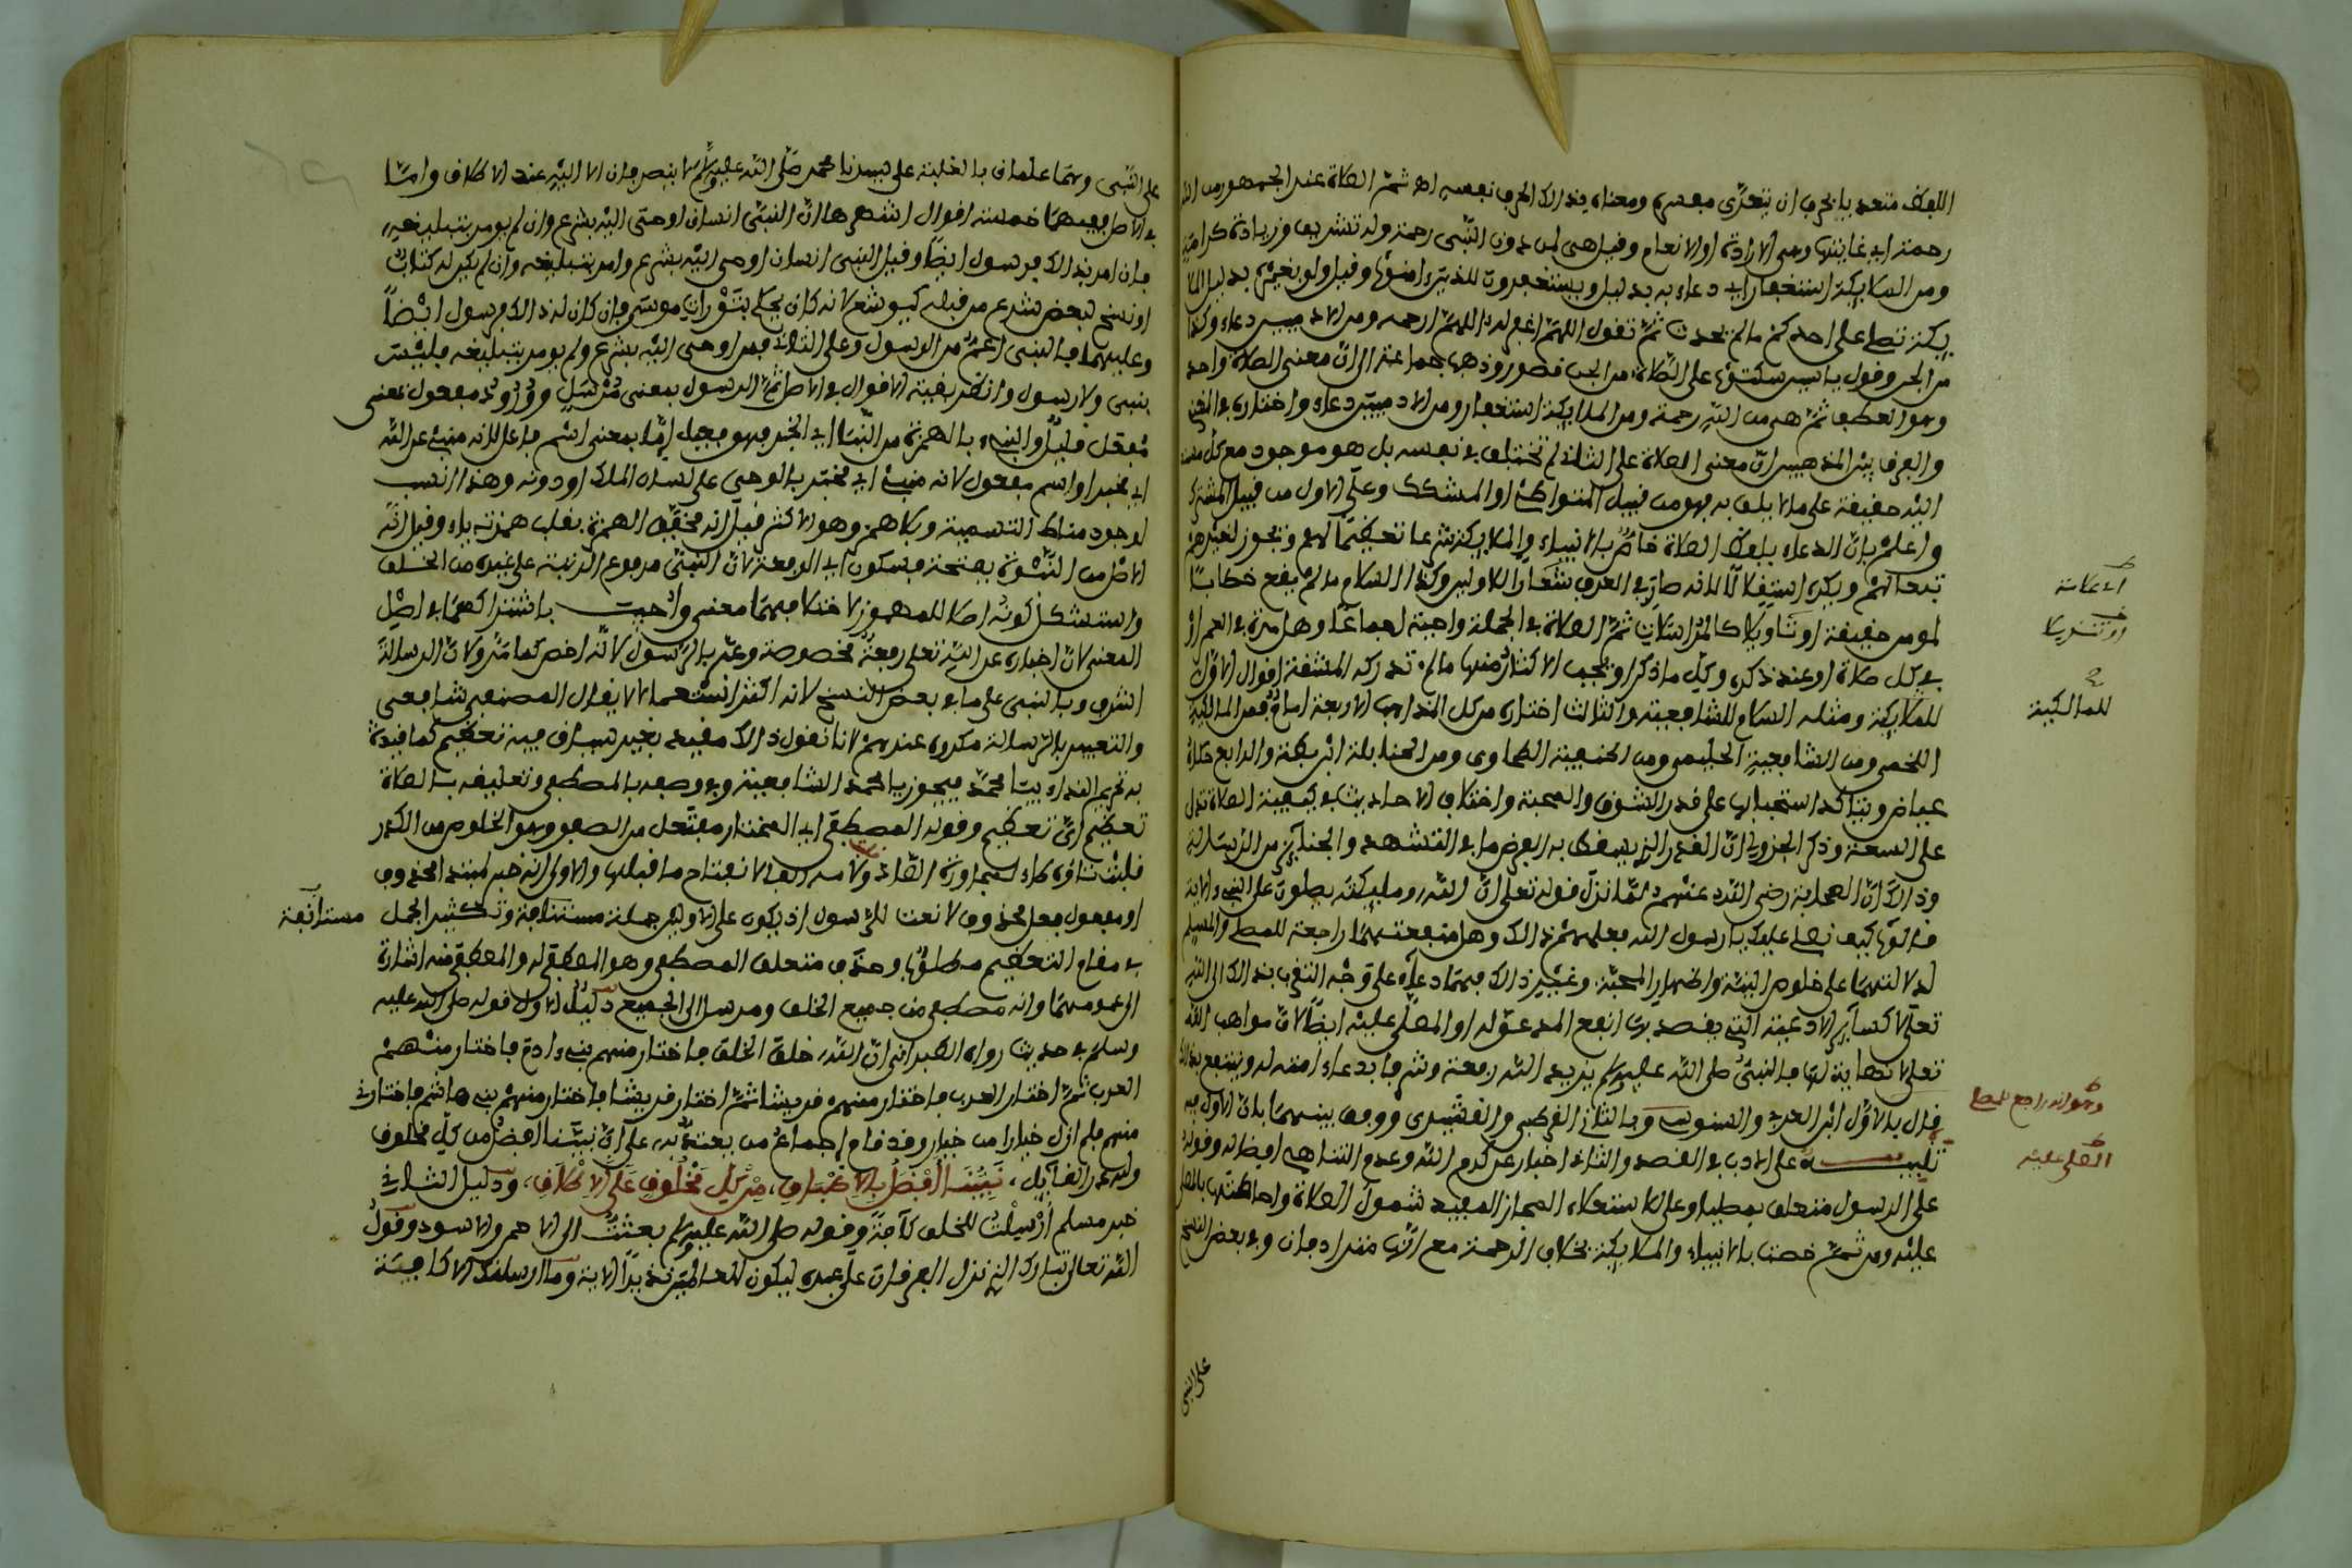 اللفظ متعد بالحرف ان يتعدى بمعناه ومعناه بذالك الحرف نفسه اه ثم الصلاة عند الجمهور من الله
رحمة اي غايتها وهي الارادة او الانعام وقيل هي لمن دون النبي رحمة وله تشريف وزيادة كرامة
ومن الملايكة استغفار اي دعاء به بدليل ويستغفرون للذين ءامنوا وقيل ولو بغيره بدليل الملا
يكة تصلي على احدكم ما لم يحدث ثم تقول اللهم اغفر له اللهم ارحمه ومن الادميين دعاء وكذا
من الجن وقول سكتوا على الصلاة من الجن قصور وذهب جماعة الى ان معنى الصلاة واحد
وهو العطف ثم هي من الله رحمة ومن الملايكة استغفار ومن الادميين دعاء واختاره في المغني
والفرق بين المذهبين ان معنى الصلاة على الثاني لم تختلف في نفسه بل هو موجود مع كل
اليه حقيقة على ما لا يليق به فهو من قبيل المتواطئ او المشكك وعلى الاول من قبيل المشترك
واعلم بان الدعاء بلفظ الصلاة خاص بالانبياء والملايكة شرعا تعظيما لهم وتجوز لغيرهم
تبعا لهم ويكره استقلالا لانه صار في العرف شعارا للاولين وكذا السلام ما لم يقع خطابا
لمومن حقيقة او تاويلا كالمراسلات ثم الصلاة في الجملة واجبة اجماعا وهل مرة في العمر او
في كل صلاة او عند ذكره وكل ما ذكر او يجب الاكثار منها ما لم تدركه المشقة اقوال الاول
للملايكة ومثله السلام للشافعية والثالث اختاره من كل المذاهب الاربعة امام فمن المالكية
اللخمي ومن الشافعية الحليمي ومن الحنفية الطحاوي ومن الحنابلة ابن بطة والرابع حكاه
عياض ويتاكد استحبابها على قدر الشوق والمحبة واختلاف الاحاديث في كيفية الصلاة تدل
على السعة وذكر الجزولي ان القدر الذي يسقط به الفرض ما في التشهد والجنايز من الرسالة
وذالك ان الصحابة رضي الله عنهم لما نزل قوله تعلى ان الله وملايكته يصلون على النبي الاية
قالوا كيف نصلي عليك يا رسول الله فعلمهم ذالك وهل منفعتهما راجعة للمصلي والمسلم
لدلالتهما على خلوص النية واظهار المحبة وغير ذالك فيهما دعاء على وجه التقرب بذالك الى الله
تعلى لا كساير الادعية التي يقصد بها نفع المدعو له او المصلى عليه ايضا لان مواهب الله
تعلى لا نهاية لها فالنبي صلى الله عليه وسلم يزيده الله رفعة وشرفا بدعاء امته له وينتفع بذالك
قال بالاول ابن العربي والسنوسي وبالثاني القرطبي والقشيري ووفق بينهما بان الاول فيه
تنبيه على الادب في القصد والثاني اخبار عن كرم الله وعدم التناهي افضاله وقوله
على الرسول متعلق بمطلبا وعلى للاستعلاء المجاز المفيد شمول الصلاة واحاطتها بالمصلى
عليه ومن ثم خصت بالانبياء والملايكة بخلاف الرحمة مع انها مترادفان وفي بعض النسخ
للمالكية
وهو انه راجع للمصلى
المصلى عليه
على النبي
على النبي وهما علمان بالغلبة على سيدنا محمد صلى الله عليه وسلم لا ينصرفان الا اليه عند الاطلاق واما
في الاصل ففيهما خمسة اقوال اشهرها ان النبي انسان اوحي اليه بشرع وان لم يومر بتبليغه
فان امر بذالك فرسول ايضا وقيل النبي انسان اوحي اليه بشرع وامر بتبليغه وان لم يكن له كتاب
او نسخ لبعض شرع من قبله كيوشع لانه كان يحكم بتوراة موسى فان كان له ذالك فرسول ايضا
وعليهما فالنبي اعم من الرسول وعلى الثاني فمن اوحي اليه بشرع ولم يومر بتبليغه فليس
بنبي ولا رسول وانظر بقية الاقوال في الاصل ثم الرسول بمعنى مرسل وورود مفعول بمعنى
مفعل قليل والنبي بالهمزة من النبا اي الخبر فهو فعيل اما بمعنى اسم فاعل لانه منبئ عن الله
اي مخبر او اسم مفعول لانه منبئ اي مخبر بالوحي على لسان الملك او دونه وهذا انسب
لوجود مناط التسمية وبلا همز وهو الاكثر قيل انه مخفف الهمزة بقلب همزته ياء وقيل انه
الاصل من النبوة بفتحة فسكون اي الرفعة لان النبي مرفوع الرتبة على غيره من الخلق
واستشكل كونه اصلا للمهموز لاختلافهما معنى واجيب باشتراكهما في اصل
المعنى لان اخباره عن الله تعلى رفعة مخصوصة وعبر بالرسول لانه اخص كما مر ولان الرسالة
اشرف وبالنبي على ما في بعض النسخ لانه اكثر استعمالا لا يقال المصنف شافعي
والتعبير بالرسالة مكروه عندهم لانا نقول ذالك مقيد بغير سياق فيه تعظيم كما قيدوا
به تحريم النداء بيا محمد فيجوز يا محمد الشافعية وفي وصفه بالمصطفى وتعليقه بالصلاة
تعظيم اي تعظيم وقوله المصطفى اي المختار مفتعل من الصفو وهو الخلوص من الكدر
قلبت تاؤه طاء لمجاورة الصاد ولامه الفا لانفتاح ما قبلها والاولى انه خبر لمبتدا محذوف
او مفعول بفعل محذوف لا نعت للرسول اذ يكون على الاولين جملة مستانفة وتكثير الجمل
مستانفة
في مقام التعظيم مطلوب وحذف متعلق المصطفى وهو المصطفى له والمصطفى منه اشارة
الى عمومهما وانه مصطفى من جميع الخلق ومرسل الى الجميع دليل الاول قوله صلى الله عليه
وسلم في حديث رواه الطبراني ان الله خلق الخلق فاختار منهم بني ءادم فاختار منهم
العرب ثم اختار العرب فاختار منهم قريشا ثم اختار قريشا فاختار منهم بني هاشم فاختارني
منهم فلم ازل خيارا من خيار وقد قام اجماع من يعتد به على ان نبينا افضل من كل مخلوق
ولله در القايل نبينا افضل بالاطباق من كل مخلوق على الاطلاق ودليل الثاني
خبر مسلم ارسلت للخلق كافة وقوله صلى الله عليه وسلم بعثت الى الاحمر والاسود وقول
الله تعالى تبارك الذي نزل الفرقان على عبده ليكون للعالمين نذيرا الاية وما ارسلناك الا كافة